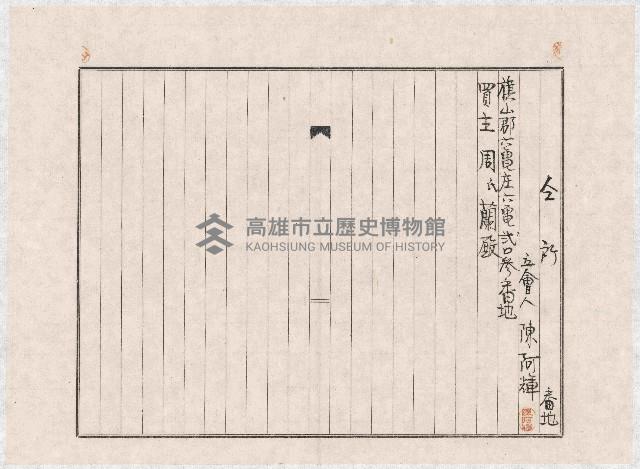 仝所 番地
立會人 陳阿輝
旗山郡六龜庄六龜弐〇参番地
買主 周氏蘭殿
高雄市立歷史博物館
KAOHSIUNG MUSEUM OF HISTORY